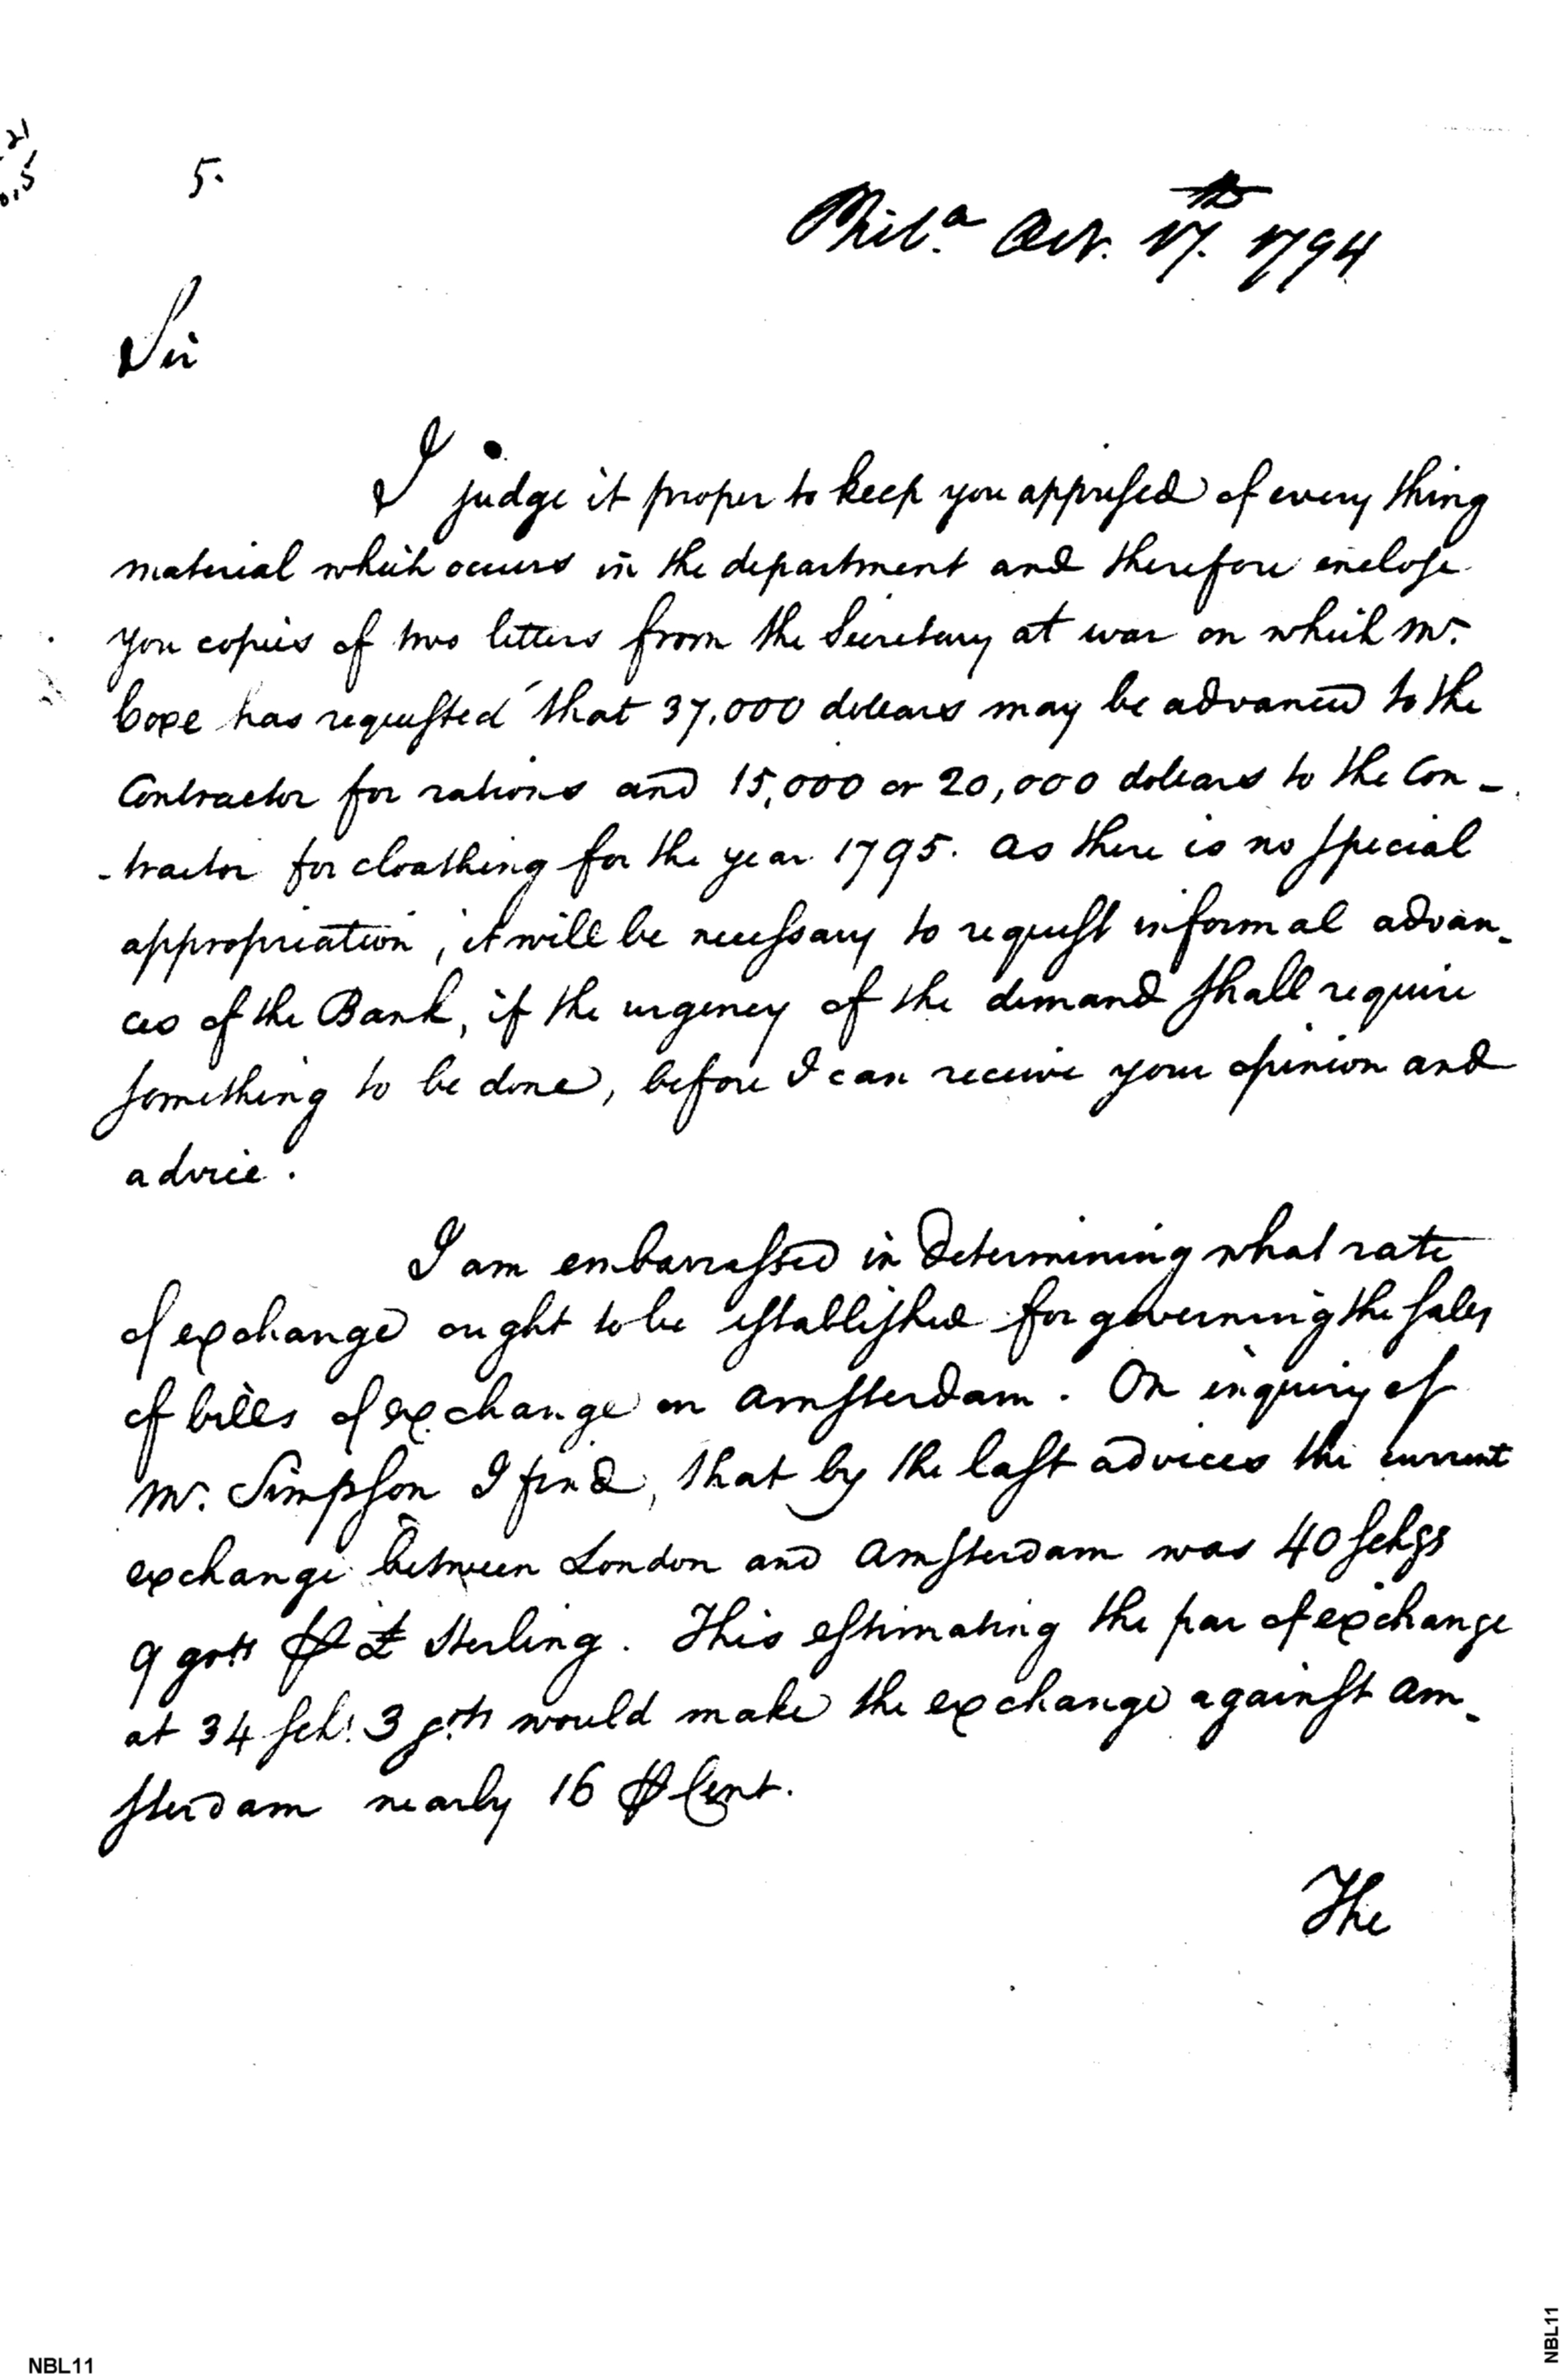 21
0.5
5.
Phila. Oct. 17th. 1794
Sir
I judge it proper to keep you apprised of every thing
material which occurs in the department and therefore enclose
you copies of two letters from the Secretary at war on which Mr.
Coxe has requested that 37,000 dollars may be advanced to the
Contractor for rations and 15,000 or 20,000 dollars to the Con-
-tractor for cloathing for the year 1795. As there is no special
appropriation, it will be necessary to request informal advan-
ces of the Bank, if the urgency of the demand shall require
something to be done, before I can receive your opinion and
advice.
I am embarrassed in determining what rate
of exchange ought to be established for governing the sales
of bills of exchange on Amsterdam. On inquiry of
Mr. Simpson I find, that by the last advices the current
exchange between London and Amsterdam was 40 schgs
9 gots ⅌ £ Sterling. This estimating the par of exchange
at 34 sch: 3 gots would make the exchange against Am-
sterdam nearly 16 ⅌ Cent.
The
NBL11
NBL11